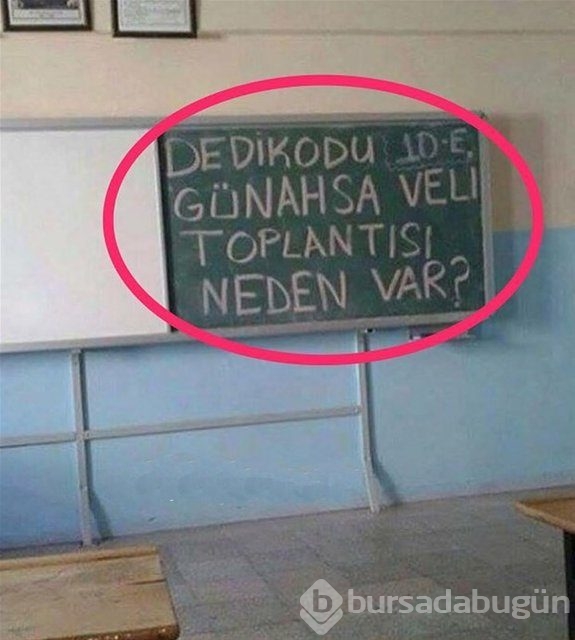 DEDİKODU 10-E,
GÜNAHSA VELİ
TOPLANTISI
NEDEN VAR?
b bursadabugün